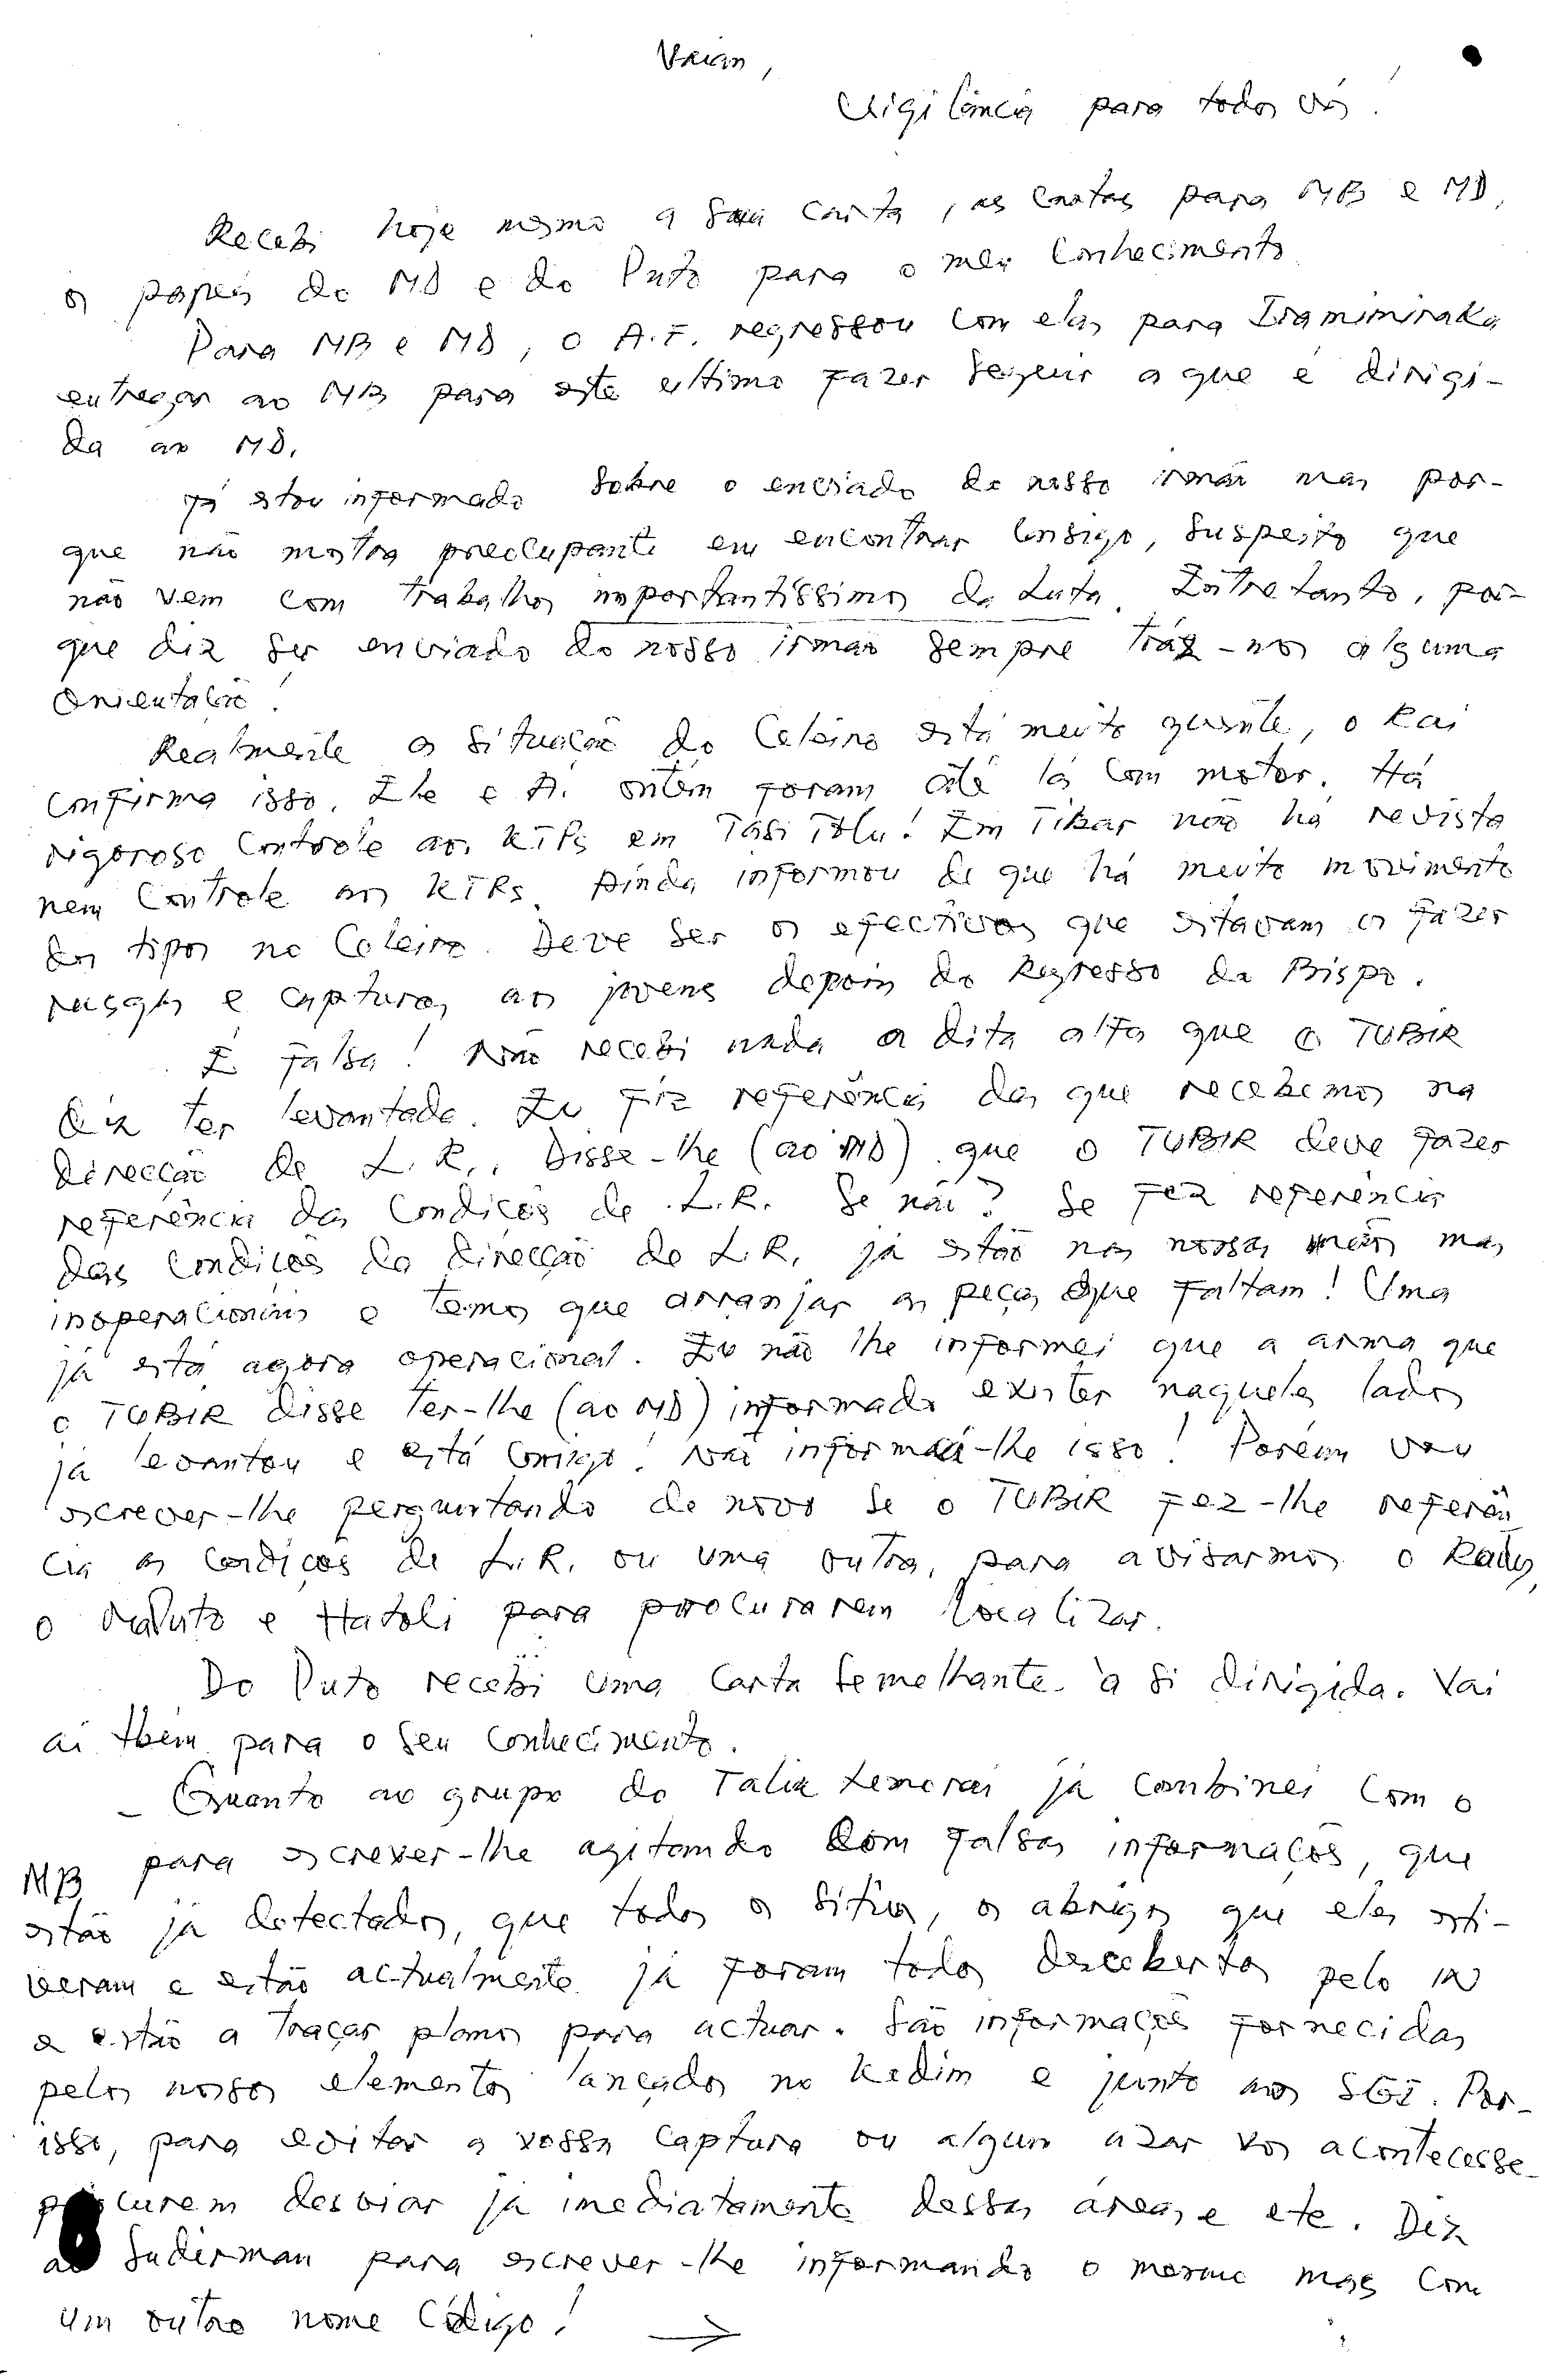 Vaian,
Vigilância para todos vós!
Recebi hoje mesmo a sua carta, as cartas para MB e MD,
os papéis do MD e do Puto para o meu conhecimento.
Para MB e MD, o A.F. regressou com elas para Iramimiraka
entregar ao MB para este ultimo fazer seguir a que é dirigi-
da ao MD.
Já estou informado sobre o enviado do nosso irmão mas por-
que não mostra preocupante em encontrar consigo, suspeito que
não vem com trabalhos importantíssimos da Luta. Entretanto, por-
que diz ser enviado do nosso irmão sempre tráz-nos alguma
orientação!
Realmente a situação do Celeiro está muito quente, o Rai
confirma isso. Ele e A. ontem foram até lá com motor. Há
rigoroso controle aos KTPs em Tasi Tolu! Em Tibar não há revista
nem controle aos KTPs. Ainda informou de que há muito movimento
dos tipos no Celeiro. Deve ser os efectivos que estavam a fazer
rusgas e capturas aos jovens depois do Regresso do Bispo.
É falsa! Não recebi nada a dita alfa que o TUBIR
diz ter levantado. Eu fiz referência das que recebemos na
direcção de L.R.. Disse-lhe (ao MD) que o TUBIR deve fazer
referência das condições de L.R. Se não? Se fez referência
das condições da direcção de L.R. já estão nas nossas mãos mas
inoperacionais e temos que arranjar as peças que faltam! Uma
já está agora operacional. Eu não lhe informei que a arma que
o TUBIR disse ter-lhe (ao MD) informado existir naqueles lados
já levantou e está comigo! Não informei-lhe isso! Porém vou
escrever-lhe perguntando de novo se o TUBIR fez-lhe referên-
cia as condições de L.R. ou uma outra, para avisarmos o
o e Hatoli para procurarem localizar.
Do Puto recebi uma carta semelhante à si dirigida. Vai
aí tbém para o seu conhecimento.
- Quanto ao grupo do Talix Lemorai já combinei com o
MB para escrever-lhe agitando com falsas informações, que
estão já detectados, que todos os sítios, os abrigos que eles esti-
veram e estão actualmente já foram todos descobertos pelo IN
e estão a traçar planos para actuar. São informações fornecidas
pelos nossos elementos lançados no Kodim e junto aos SGI. Por-
isso, para evitar a vossa captura ou algum azar vos acontecesse
procurem desviar já imediatamente dessas áreas, e etc. Diz
ao Suderman para escrever-lhe informando o mesmo mas com
um outro nome código!